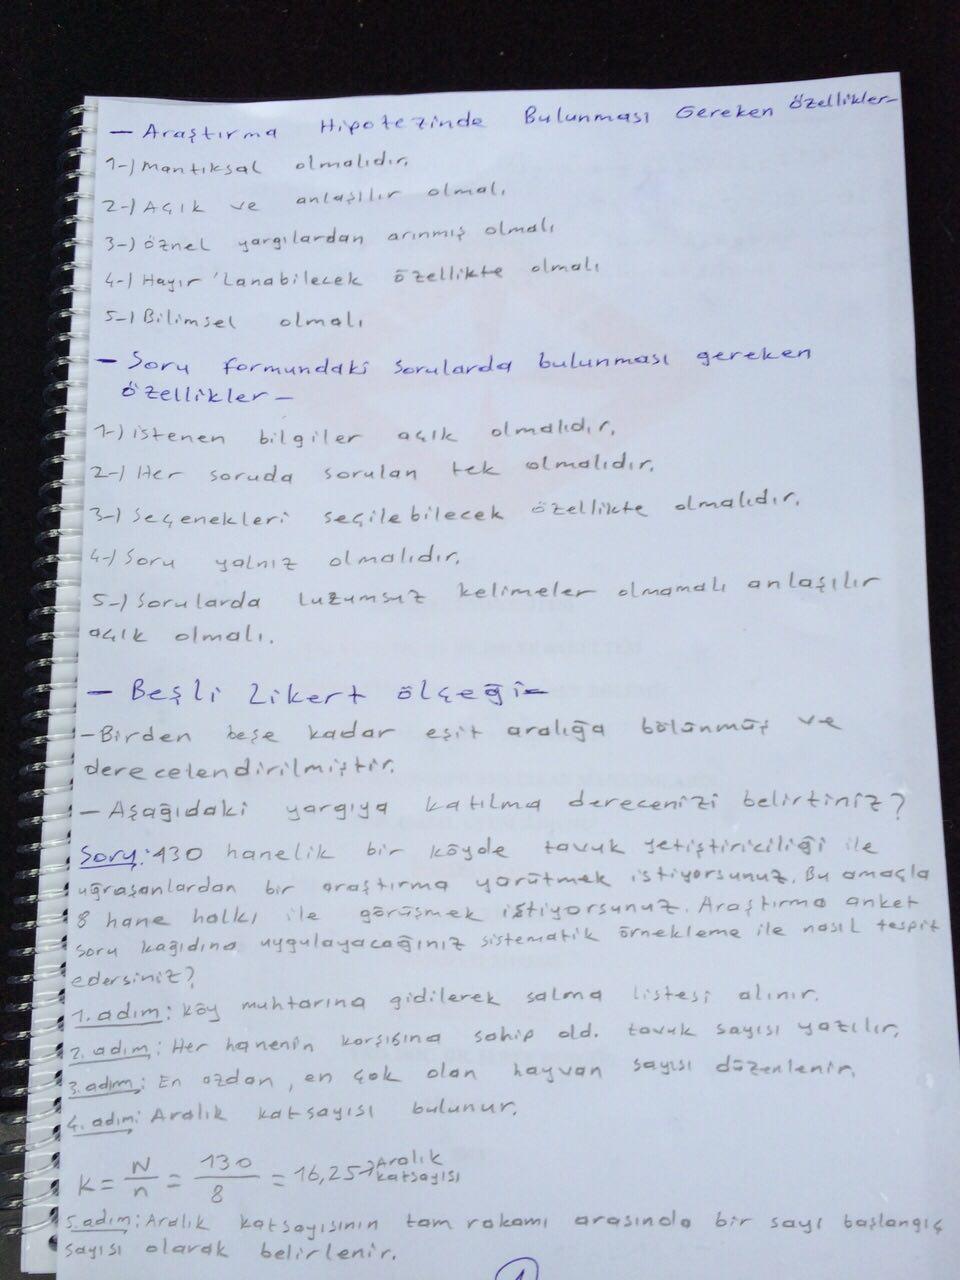 - Araştırma Hipotezinde Bulunması Gereken Özellikler-
1-) Mantıksal olmalıdır.
2-) Açık ve anlaşılır olmalı
3-) Öznel yargılardan arınmış olmalı
4-) Hayır'lanabilecek özellikte olmalı
5-) Bilimsel olmalı
- Soru formundaki sorularda bulunması gereken
özellikler -
1-) istenen bilgiler açık olmalıdır.
2-) Her soruda sorulan tek olmalıdır.
3-) Seçenekleri seçilebilecek özellikte olmalıdır.
4-) Soru yalnız olmalıdır.
5-) Sorularda luzumsuz kelimeler olmamalı anlaşılır
açık olmalı.
- Beşli Likert ölçeği -
- Birden beşe kadar eşit aralığa bölünmüş ve
derecelendirilmiştir.
- Aşağıdaki yargıya katılma derecenizi belirtiniz?
Soru: 130 hanelik bir köyde tavuk yetiştiriciliği ile
uğraşanlardan bir araştırma yürütmek istiyorsunuz. Bu amaçla
8 hane halkı ile görüşmek istiyorsunuz. Araştırma anket
soru kağıdına uygulayacağınız sistematik örnekleme ile nasıl tespit
edersiniz?
1. adım: Köy muhtarına gidilerek salma listesi alınır.
2. adım: Her hanenin karşısına sahip old. tavuk sayısı yazılır.
3. adım: En azdan, en çok olan hayvan sayısı düzenlenir.
4. adım: Aralık katsayısı bulunur.
K = N/n = 130/8 = 16,25 → Aralık katsayısı
5. adım: Aralık katsayısının tam rakamı arasında bir sayı başlangıç
sayısı olarak belirlenir.
1